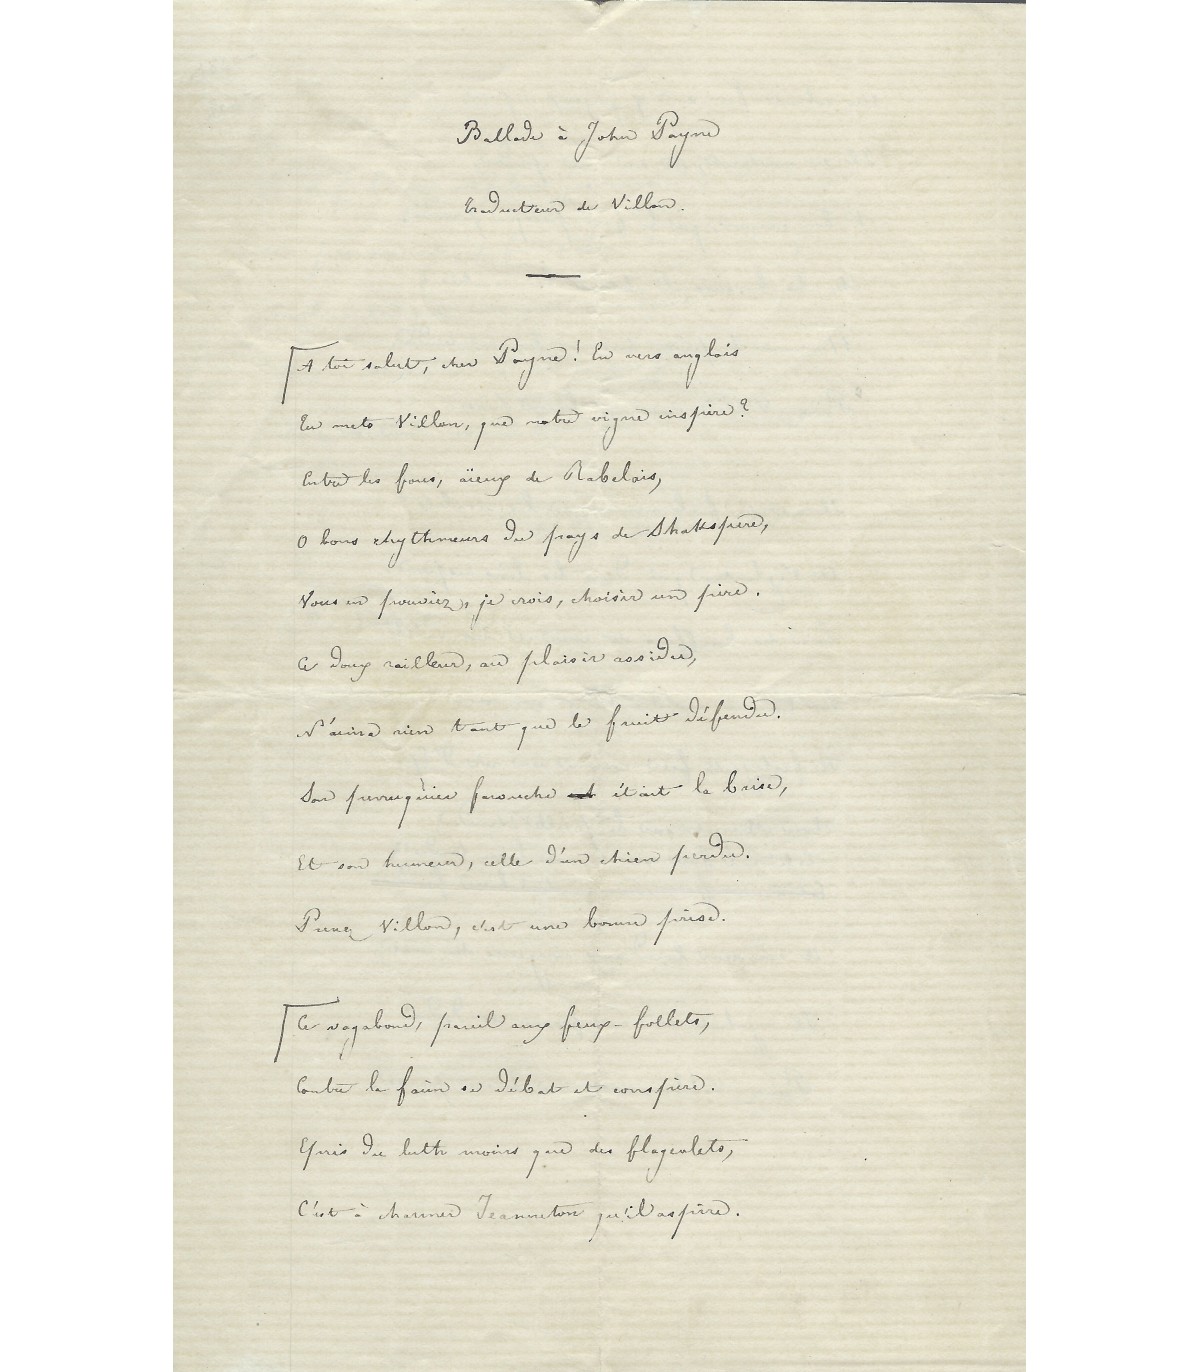 Ballade à John Payne
Traducteur de Villon.
A toi salut, cher Payne! En vers anglois
Tu mets Villon, que notre vigne inspire?
Entre les fous, aïeux de Rabelois,
O bons rhythmeurs du pays de Shakspere,
Vous en pouviez, je crois, choisir un pire.
Ce doux railleur, au plaisir assidu,
N'aima rien tant que le fruit défendu.
Son perruquier farouche était la brise,
Et son humeur, celle d'un chien perdu.
Prenez Villon, c'est une bonne prise.
Ce vagabond, pareil aux feux-follets,
Contre la faim se débat et conspire.
Epris du luth moins que des flageolets,
C'est à charmer Jeanneton qu'il aspire.